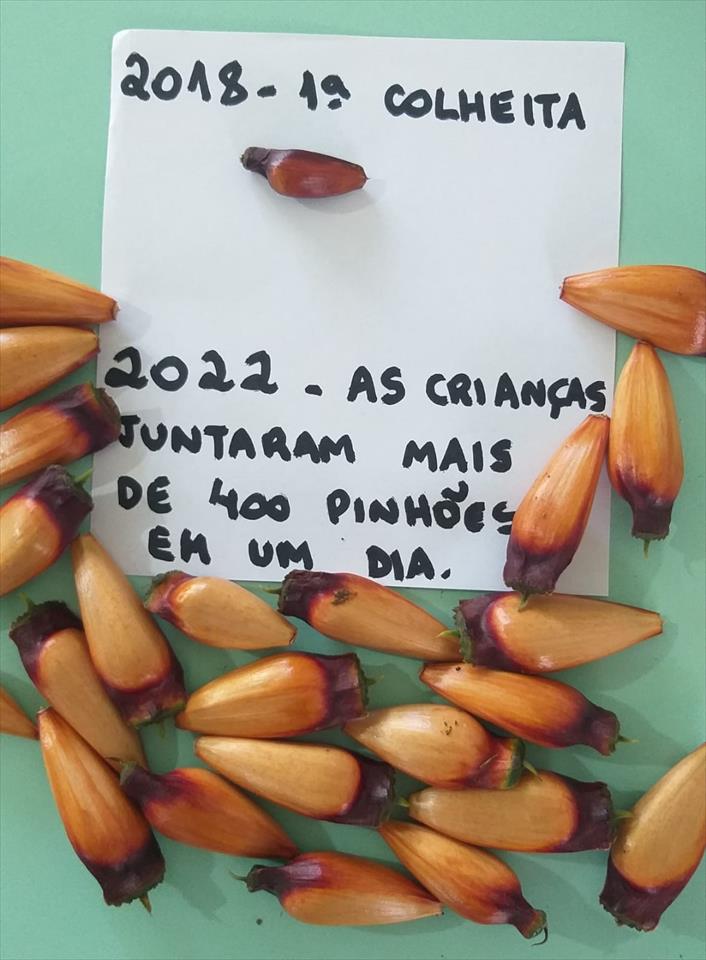 2018 - 1ª COLHEITA
2022 - AS CRIANÇAS
JUNTARAM MAIS
DE 400 PINHÕES
EM UM DIA.